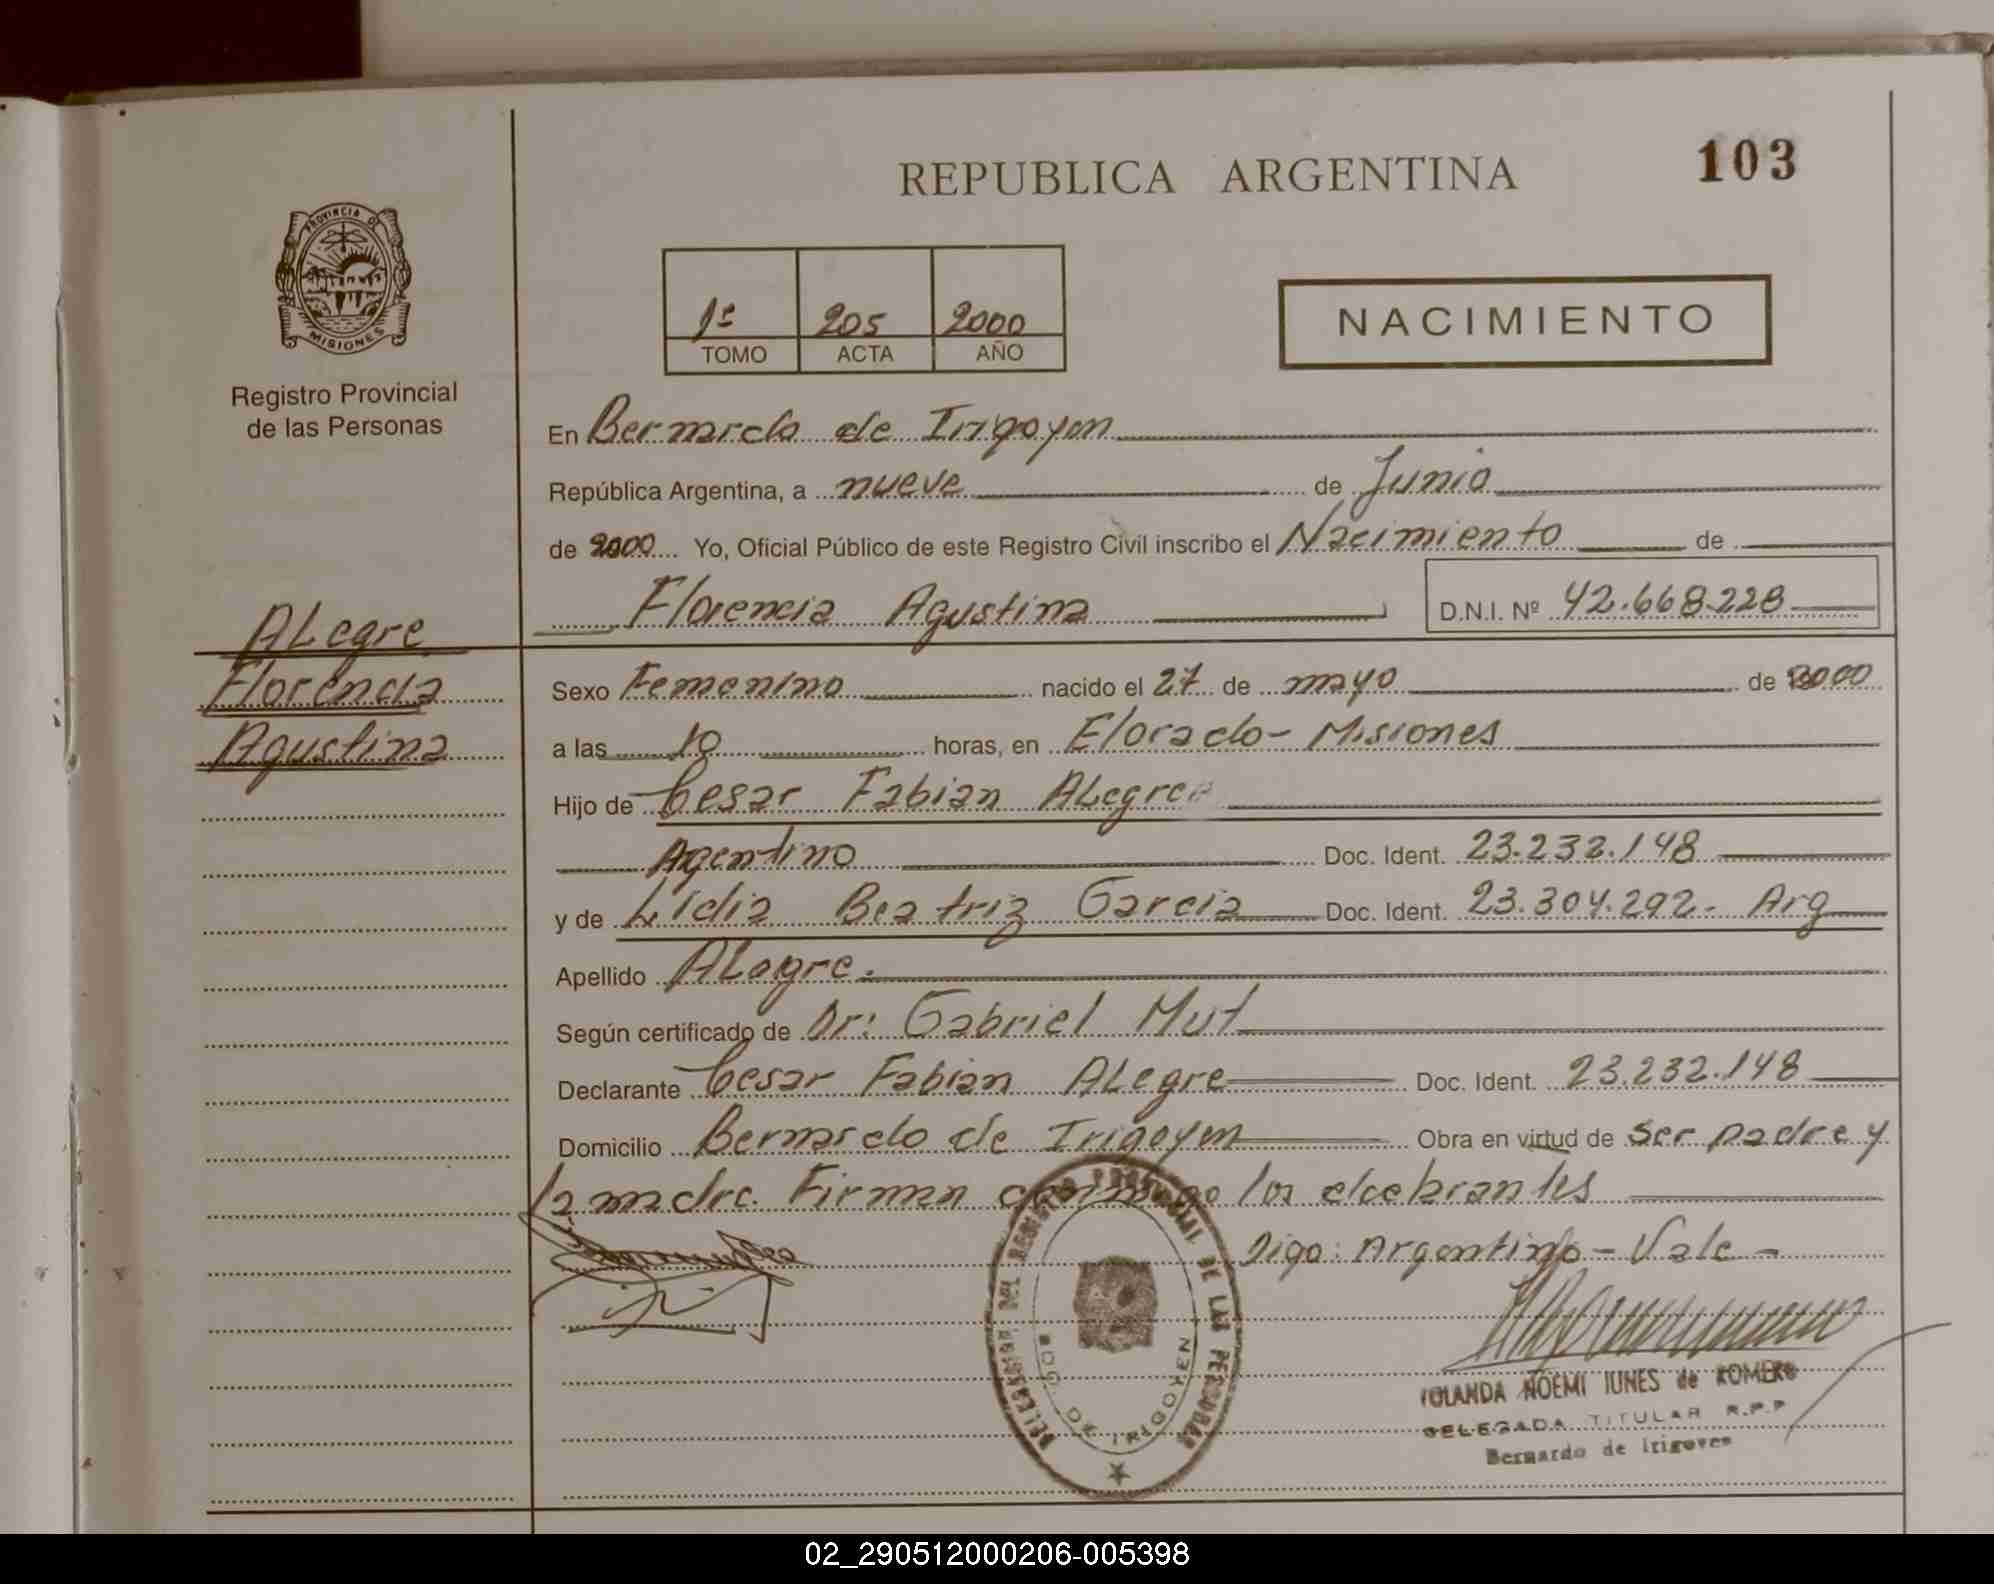 REPUBLICA ARGENTINA
103
PROVINCIA DE
MISIONES
Registro Provincial
de las Personas
1º 205 2000
TOMO ACTA AÑO
NACIMIENTO
En Bernardo de Irigoyen
República Argentina, a nueve de Junio
de 2000 Yo, Oficial Público de este Registro Civil inscribo el Nacimiento de
Florencia Agustina D.N.I. Nº 42.668.228
ALegre
Florencia
Agustina
Sexo Femenino nacido el 27 de mayo de 2000
a las 10 horas, en Elorado - Misiones
Hijo de Cesar Fabian ALegre
Agentino Doc. Ident. 23.232.148
y de Lidia Beatriz Garcia Doc. Ident. 23.304.292 - Arg
Apellido ALegre.
Según certificado de Dr: Gabriel Mut
Declarante Cesar Fabian ALegre Doc. Ident. 23.232.148
Domicilio Bernardo de Irigoyen Obra en virtud de ser padre y
la madre. Firman conmigo los
Digo: Argentino - Vale -
DELEGACION DEL REGISTRO PROVINCIAL DE LAS PERSONAS
BDO. DE IRIGOYEN
YOLANDA NOEMI IUNES de ROMERO
DELEGADA TITULAR R.P.P
Bernardo de Irigoyen
02_290512000206-005398